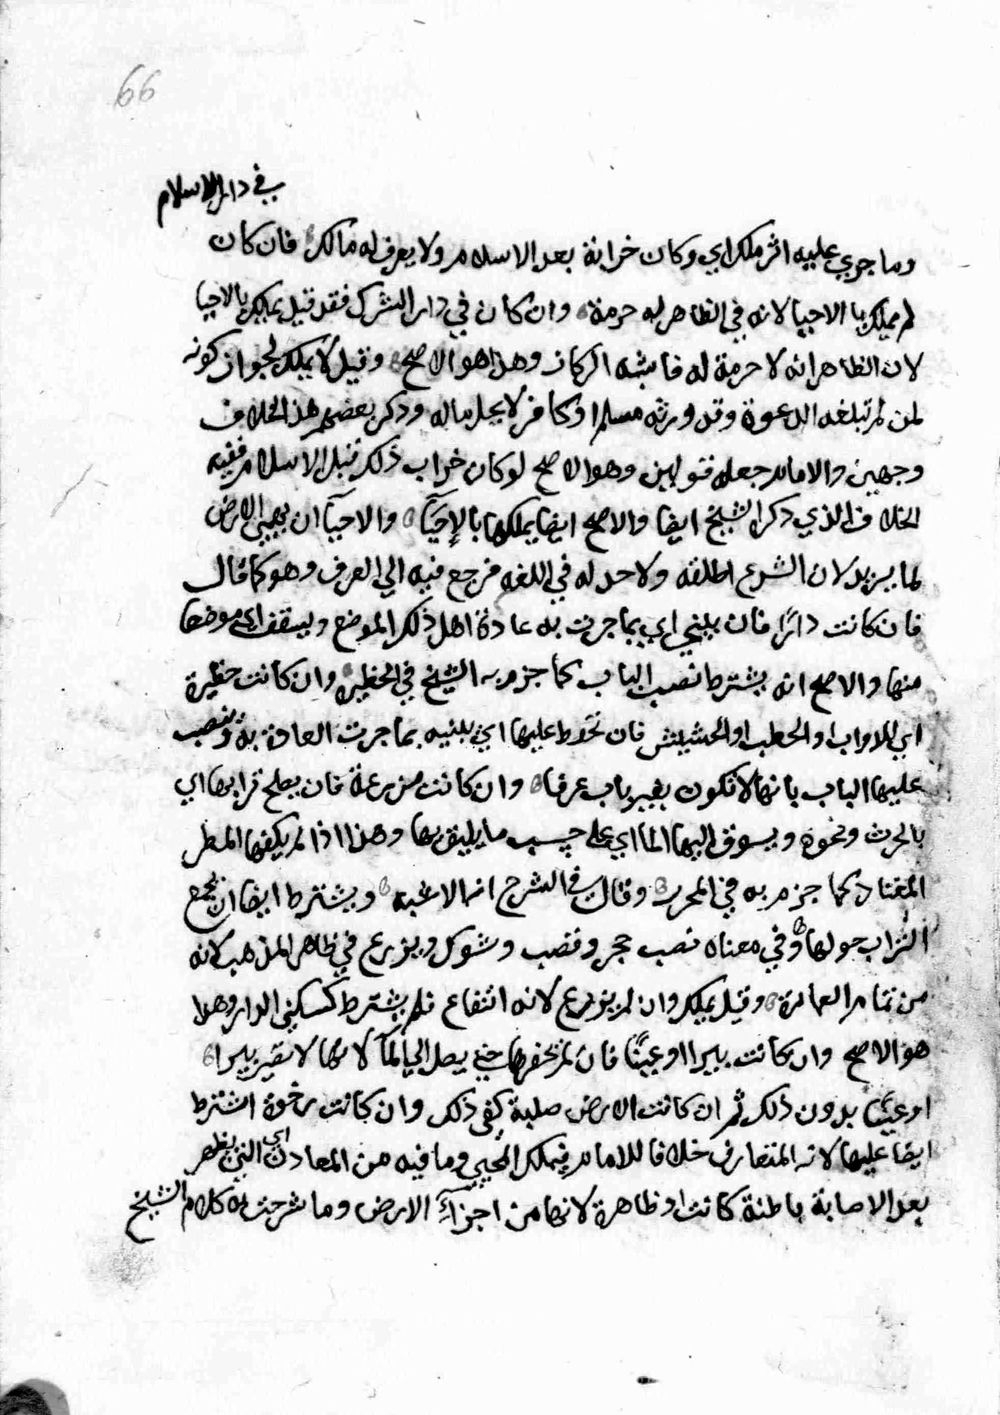 66
في دار الاسلام
وما جري عليه اثر ملك اي وكان خرابة بعد الاسلام ولا يعرف له مالك فان كان
لم يملك بالاحيا لانه في الظاهر له حرمة وان كان في دار الشرك فقد قيل يملك بالاحيا
لان الظاهر انه لا حرمة له فاشبه الركاز وهذا هو الاصح وقيل لا يملك لجواز كونه
لمن لم تبلغه الدعوة وقد ورثه مسلم او كافر لا يحل ماله وذكر بعضهم هذا الخلاف
وجهين والامام جعله قولين وهو الاصح لو كان خراب ذلك قبل الاسلام ففيه
الخلاف الذي ذكر الشيخ ايضا والاصح ايضا يملكها بالإحيآ والاحيآ ان يهيئ الارض
لما يريد لان الشرع اطلقه ولا حد له في اللغه فرجع فيه الي العرف وهو كما قال
فان كانت دارًا فان يبني اي بما جرت به عادة اهل ذلك الموضع ويسقف اي موضعا
منها والاصح انه يشترط نصب الباب كما جزم به الشيخ في الحظيرة وان كانت حظيرة
اي للدواب او الحطب او الحشيش فان تحوط عليها اي يبنيه بما جرت العادة به وينصب
عليها الباب بانها لا تكون بغير باب عرفا وان كانت مزرعة فان يصلح ترابها اي
بالحرث ونحوه ويسوق اليها الما اي علي حسب ما يليق بها وهذا اذا لم يكفها المطر
المعتاد كما جزم به في المحرر وقال في الشرح انه الاشبه ويشترط ايضا ان يجمع
التراب حولها وفي معناه نصب حجر وقصب وشوك ويزرع في ظاهر المذهب لانه
من تمام العمارة وقيل يملك وان لم يزرع لانه انتفاع فلم يشترط كسكني الدار وهذا
هو الاصح وان كانت بيرا او عينًا فان يحفرها حتي يصل الي المآ لانها لا تصير بيرا
او عينًا بدون ذلك ثم ان كانت الارض صلبة كفي ذلك وان كانت رخوة اشترط
ايضا عليها لانه المتعارف خلافا للامام فيملك المحيي وما فيه من المعادن اي التي يظهر
بعد الاصابة باطنة كانت او ظاهرة لانها من اجزآء الارض وما شرحت به كلام الشيخ